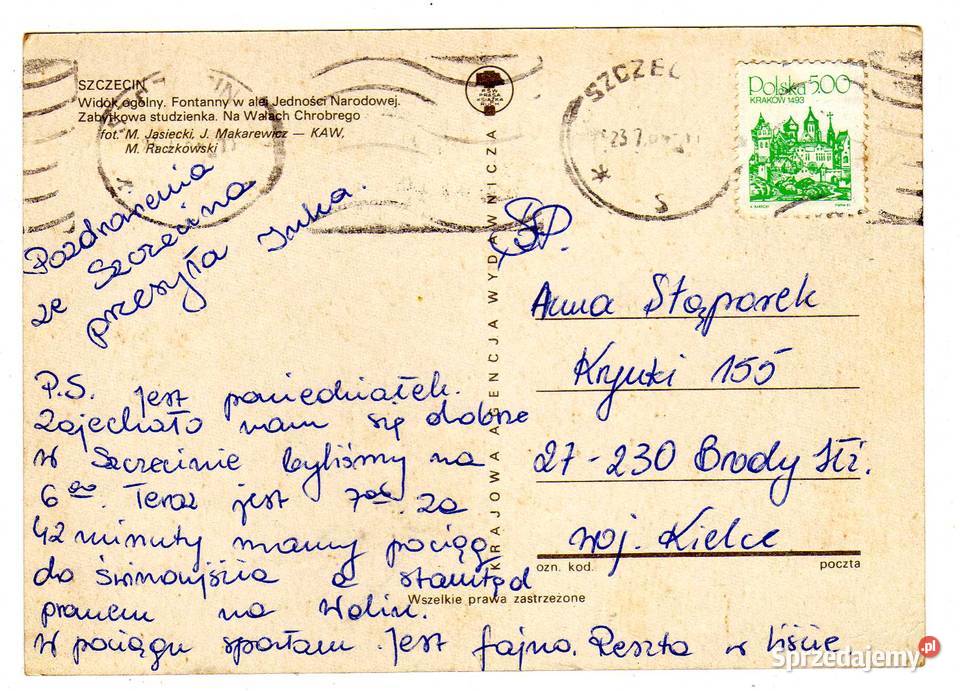 SZCZECIN
Widok ogólny. Fontanny w alei Jedności Narodowej.
Zabytkowa studzienka. Na Wałach Chrobrego
fot. M. Jasiecki, J. Makarewicz — KAW,
M. Raczkowski
Pozdrowienia
ze Szczecina
przesyła Inka.
P.S. Jest poniedziałek.
Zajechało nam się dobrze
w Szczecinie byliśmy na
6⁰⁰. Teraz jest 7⁰⁶. za
42 minuty mamy pociąg
do Świnoujścia a stamtąd
promem na Wolin.
W pociągu spałam. Jest fajno. Reszta w liście.
KRAJOWA AGENCJA WYDAWNICZA
RSW
PRASA
KSIĄŻKA
RUCH
SZCZEC
Polska 5.00
KRAKÓW 1493
SP.
Anna Stąporek
Krynki 155
27-230 Brody Iłż.
woj. Kielce
ozn. kod. poczta
Wszelkie prawa zastrzeżone
Sprzedajemy.pl